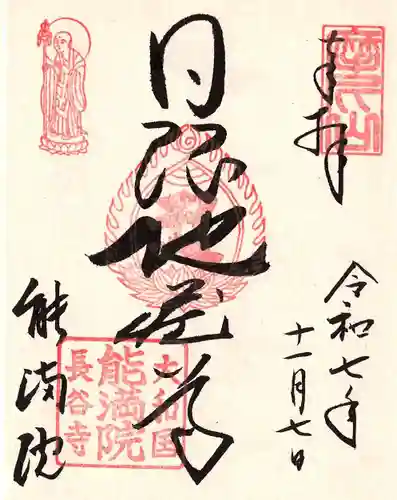 奉拝
令和七年
十一月七日
日限地蔵尊
能満院
大和国
能満院
長谷寺